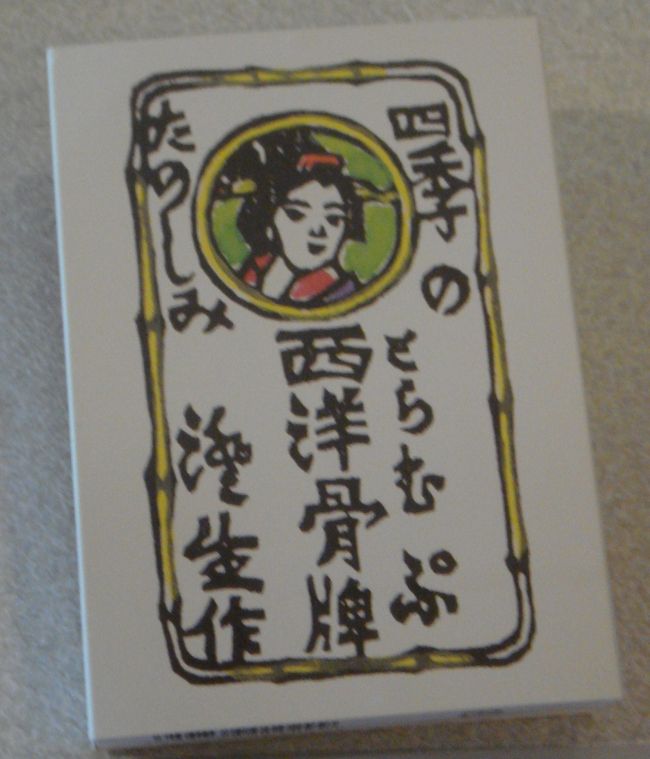 四季の
たのしみ
とらむぷ
西洋骨牌
生作